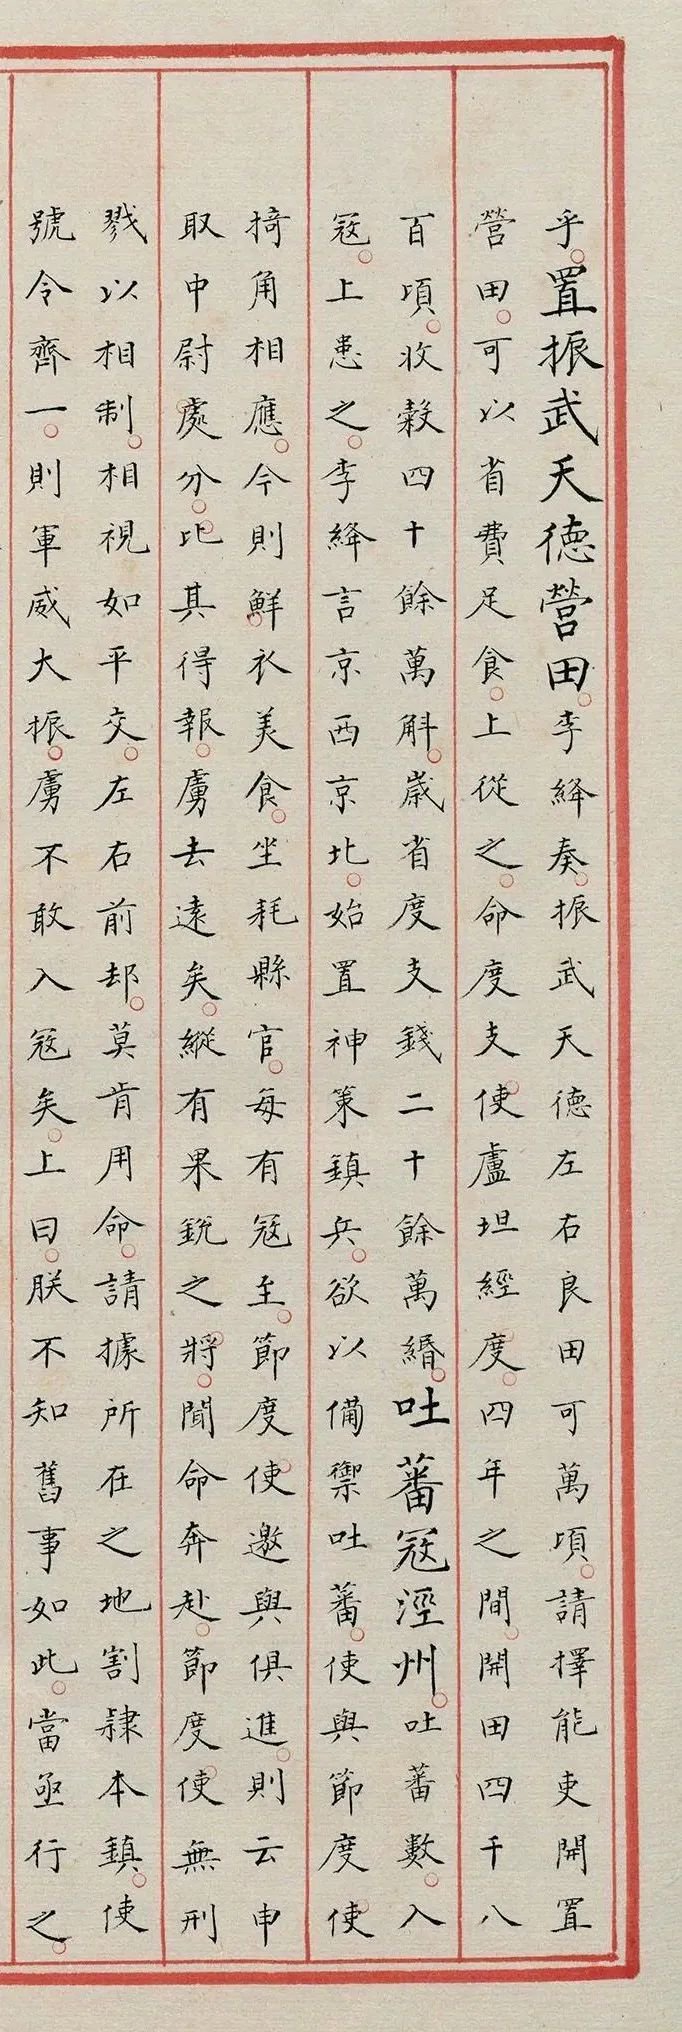 乎置振武天德營田李絳奏振武天德左右良田可萬頃請擇能吏開置
營田可以省費足食上從之命度支使盧坦經度四年之間開田四千八
百頃收穀四十餘萬斛歲省度支錢二十餘萬緡吐蕃寇涇州吐蕃數入
寇上患之李絳言京西京北始置神策鎮兵欲以備禦吐蕃使與節度使
掎角相應今則鮮衣美食坐耗縣官每有寇至節度使邀與俱進則云申
取中尉處分比其得報虜去遠矣縱有果銳之將聞命奔赴節度使無刑
戮以相制相視如平交左右前却莫肯用命請據所在之地割隸本鎮使
號令齊一則軍威大振虜不敢入寇矣上曰朕不知舊事如此當亟行之